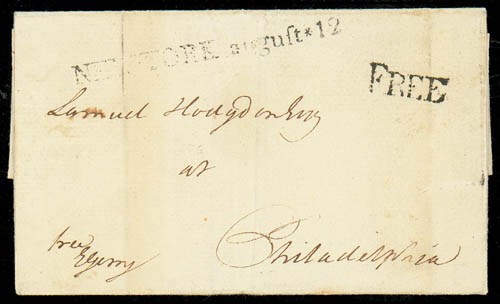 NEW*YORK auguſt*12
FREE
Samuel Hodgdon Esq
at
Philadelphia
free
E Gerry